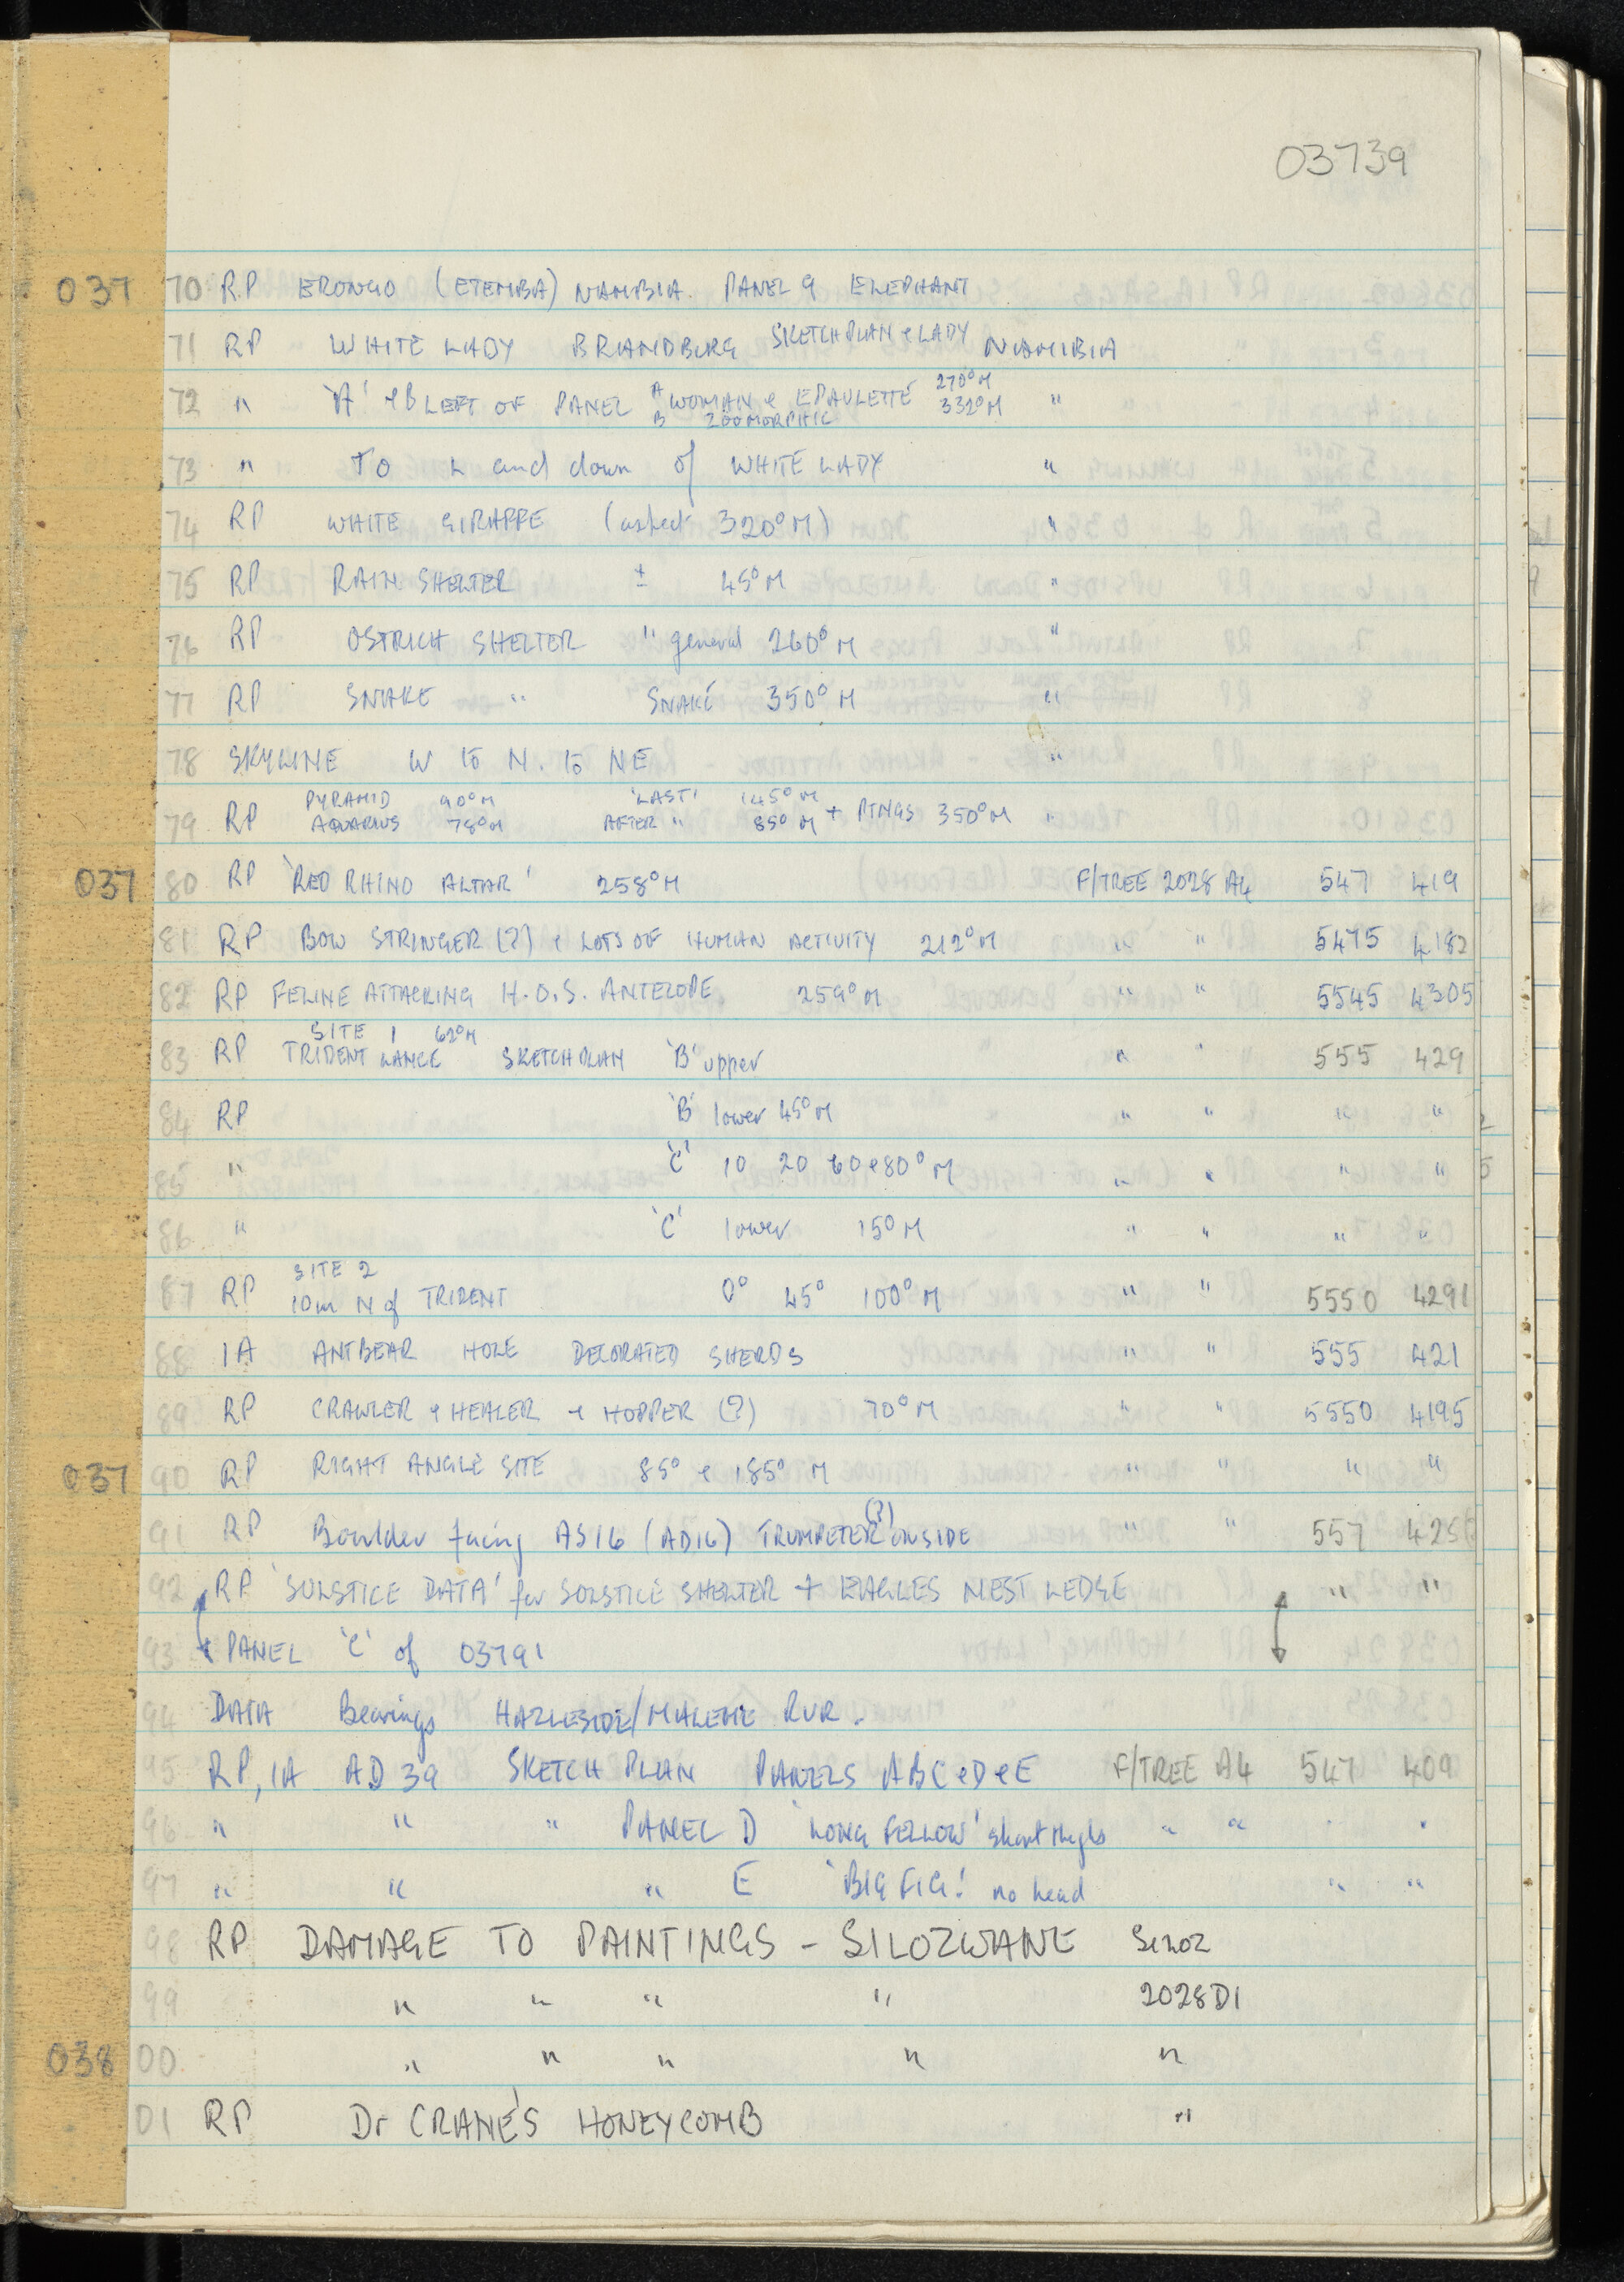 03739
037 70 RP ERONGO (ETEMBA) NAMIBIA. PANEL 9 ELEPHANT
71 RP WHITE LADY BRANDBURG SKETCHPLAN & LADY NAMIBIA
72 " 'A' & B LEFT OF PANEL A WOMAN & EPAULETTE 270°M "
B ZOOMORPHIC 332°M
73 " TO L and down of WHITE LADY "
74 RP WHITE GIRAFFE (aspect 320°M) "
75 RP RAIN SHELTER ± 45°M "
76 RP OSTRICH SHELTER " general 260°M "
77 RP SNAKE " SNAKE 350°M "
78 SKYLINE W to N. to NE "
PYRAMID 90°M 'LAST' 145°M
79 RP AQUARIUS 78°M AFTER " 85°M + PTNGS 350°M "
037 80 RP 'RED RHINO ALTAR' 258°M F/TREE 2028 A4 547 419
81 RP BOW STRINGER (?) & LOTS OF HUMAN ACTIVITY 212°M " " 5475 4182
82 RP FELINE ATTACKING H.O.S. ANTELOPE. 259°M " " 5545 4305
SITE 1 62°M
83 RP TRIDENT LANCE SKETCHPLAN 'B' upper " " 555 429
84 RP 'B' lower 45°M " " " "
85 " 'C' 10 20 60 & 80°M " " " "
86 " 'C' lower 15°M " " " "
SITE 2
87 RP 10m N of TRIDENT 0° 45° 100°M " " 5550 4291
88 IA ANTBEAR HOLE DECORATED SHERDS " " 555 421
89 RP CRAWLER & HEALER & HOPPER (?) 70°M " " 5550 4195
037 90 RP RIGHT ANGLE SITE 85° & 185°M " " " "
91 RP Boulder facing AS16 (AD16) TRUMPETER (?) ONSIDE " " 557 425
92 RP 'SOLSTICE DATA' for SOLSTICE SHELTER + EAGLES NEST LEDGE " "
93 & PANEL 'C' of 03791
94 DATA Bearings HAZLESIDE/MALEME RVR.
95 RP, IA AD 39 SKETCH PLAN PANELS ABC & D & E F/TREE A4 547 409
96 " " " PANEL D 'LONG FELLOW' short thighs " " " "
97 " " " E 'BIG FIG.' no head " "
98 RP DAMAGE TO PAINTINGS - SILOZWANE SILOZ
99 " " " " 2028D1
038 00 " " " " "
01 RP Dr CRANE'S HONEYCOMB "